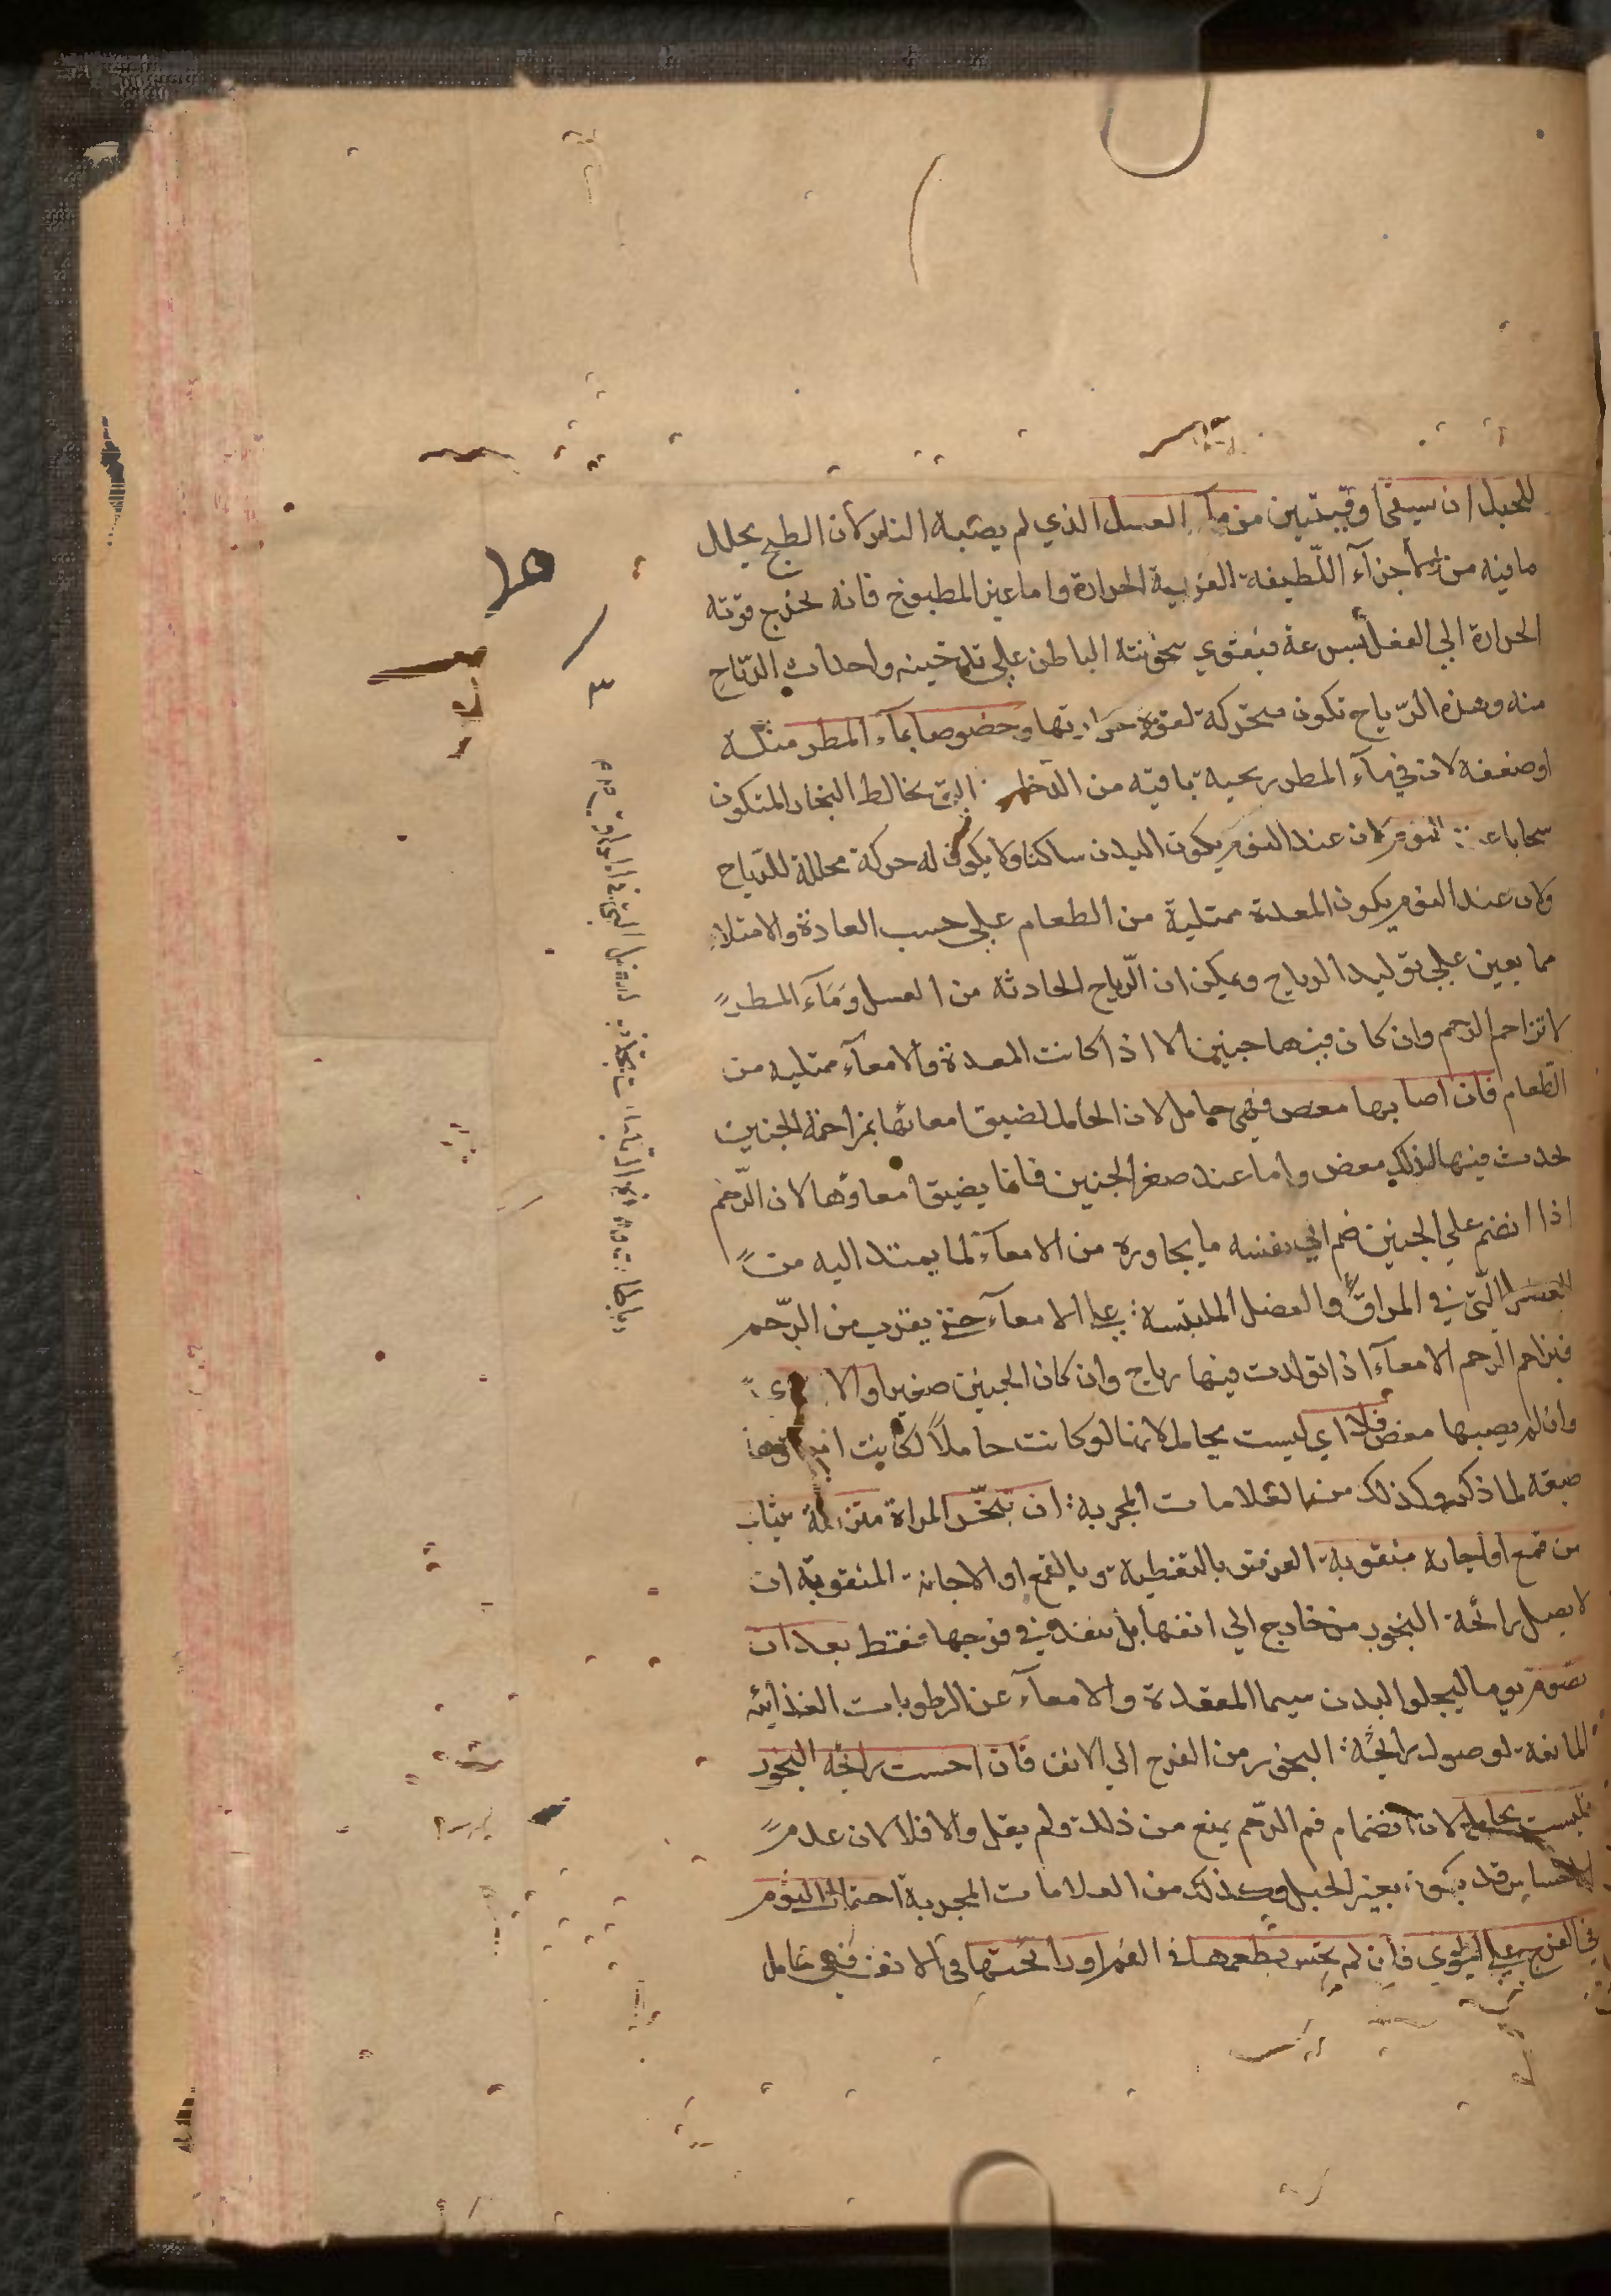 للحبل ان تسقى اوقيتين من مآء العسل الذي لم يصبه النار لان الطبخ يحلل
ما فيه من الاجزآء اللّطيفة الغريبة الحرارة واما غير المطبوخ فانه تخرج قوته
الحرارة الي الفعل بسرعة فيقوي سخونته الباطن علي تدخينه واحداث الرّياح
منه وهذه الرّياح تكون متحركة لقوة حرارتها وخصوصا بمآء المطر مثله
اوضعفه لان في مآء المطر ريحية باقيه من التي تخالط البخار المتكون
سحابا عند النوم لان عند النوم يكون البدن ساكنا ولا يكون له حركة محللة للرّياح
ولان عند النوم يكون المعدة ممتلية من الطعام علي حسب العادة والامتلاء
مما يعين علي توليد الرياح ويمكن ان الرّياح الحادثه من العسل ومآء المطر
لا تزاحم الرحم وان كان فيها جنين الا اذا كانت المعدة والامعآء ممتليه من
الطّعام فان اصابها مغص فهي حامل لان الحامل لضيق امعائها بمزاحمة الجنين
يحدث فيها لذلك مغص واما عند صغر الجنين فانما يضيق امعاوها لان الرّحم
اذا انضم علي الجنين ضم الي نفسه ما يجاوره من الامعآء لما يمتد اليه من
التي في المراق والعضل الملتبسة علي الامعآء حتى يقرب من الرّحم
فيزاحم الرحم الامعآء اذا تولدت فيها رياح وان كان الجنين صغيرا والا
وان لم يصبها مغص فلا اي ليست بحامل لانها لو كانت حاملاً لكانت
ضيقه لما ذكر وكذلك من العلامات المجربة ان تبخّر المراة متزملة بثياب
من قمع او اجانة مثقوبة الغرض بالتغطية وبالقمع او الاجانة المثقوبة ان
لا يصل رائحة البخور من خارج الي انفها بل تنفذ في فرجها فقط بعد ان
تصوم يوما ليخلو البدن سيما المعدة والامعآء عن الرطوبات الغذائيه
المانعة لوصول رائحة البخور من الفرج الي الانف فان احست برائحة البخور
فليست بحامل لان انضمام فم الرّحم يمنع من ذلك ولم يقل والا فلا لان عدم
الاحساس قد يكون بغير الحبل وكذلك من العلامات المجربة احتمال الثوم
في الفرج علي الطوي فان لم تحس بطعمها في الفم او رائحتها في الانف فهي حامل